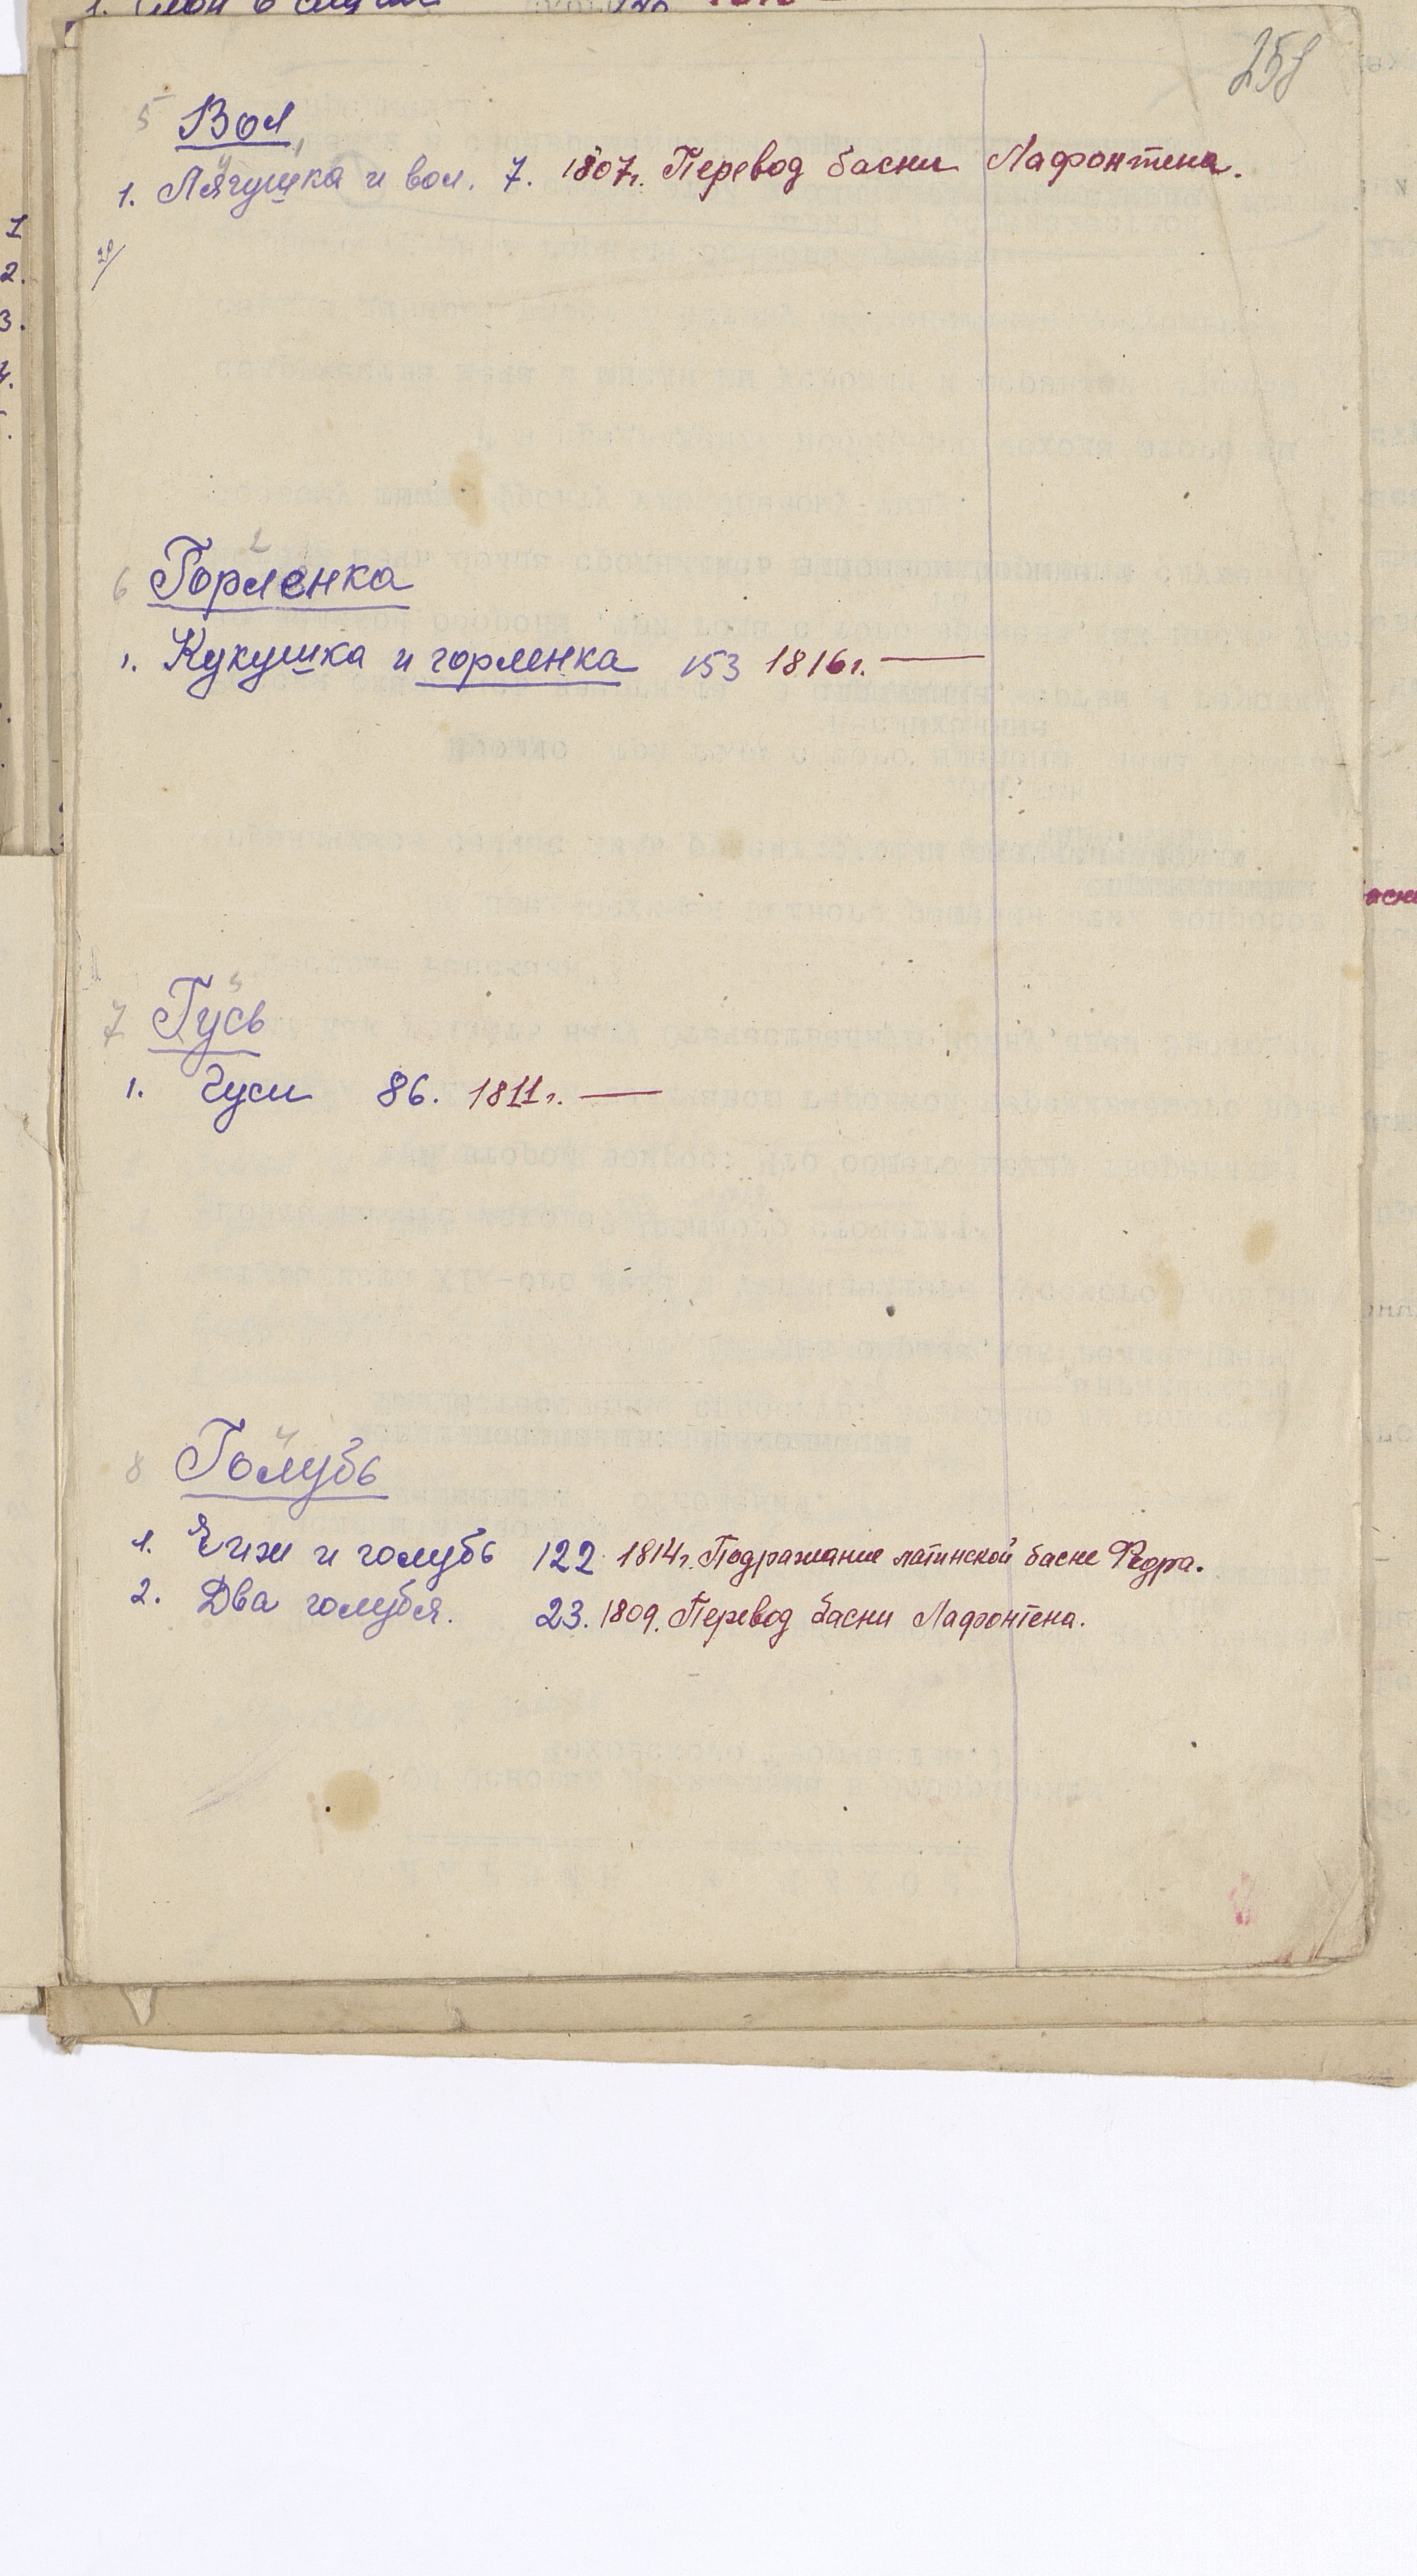 258
5 Вол
1. Лягушка и вол. 7. 1807г. Перевод басни Лафонтена.
6 Горленка
1. Кукушка и горленка 153 1816г. —
7 Гусь
1. Гуси 86. 1811г. —
8 Голубь
1. Чиж и голубь 122 1814г. Подражание латинской басне Федра.
2. Два голубя. 23. 1809. Перевод басни Лафонтена.